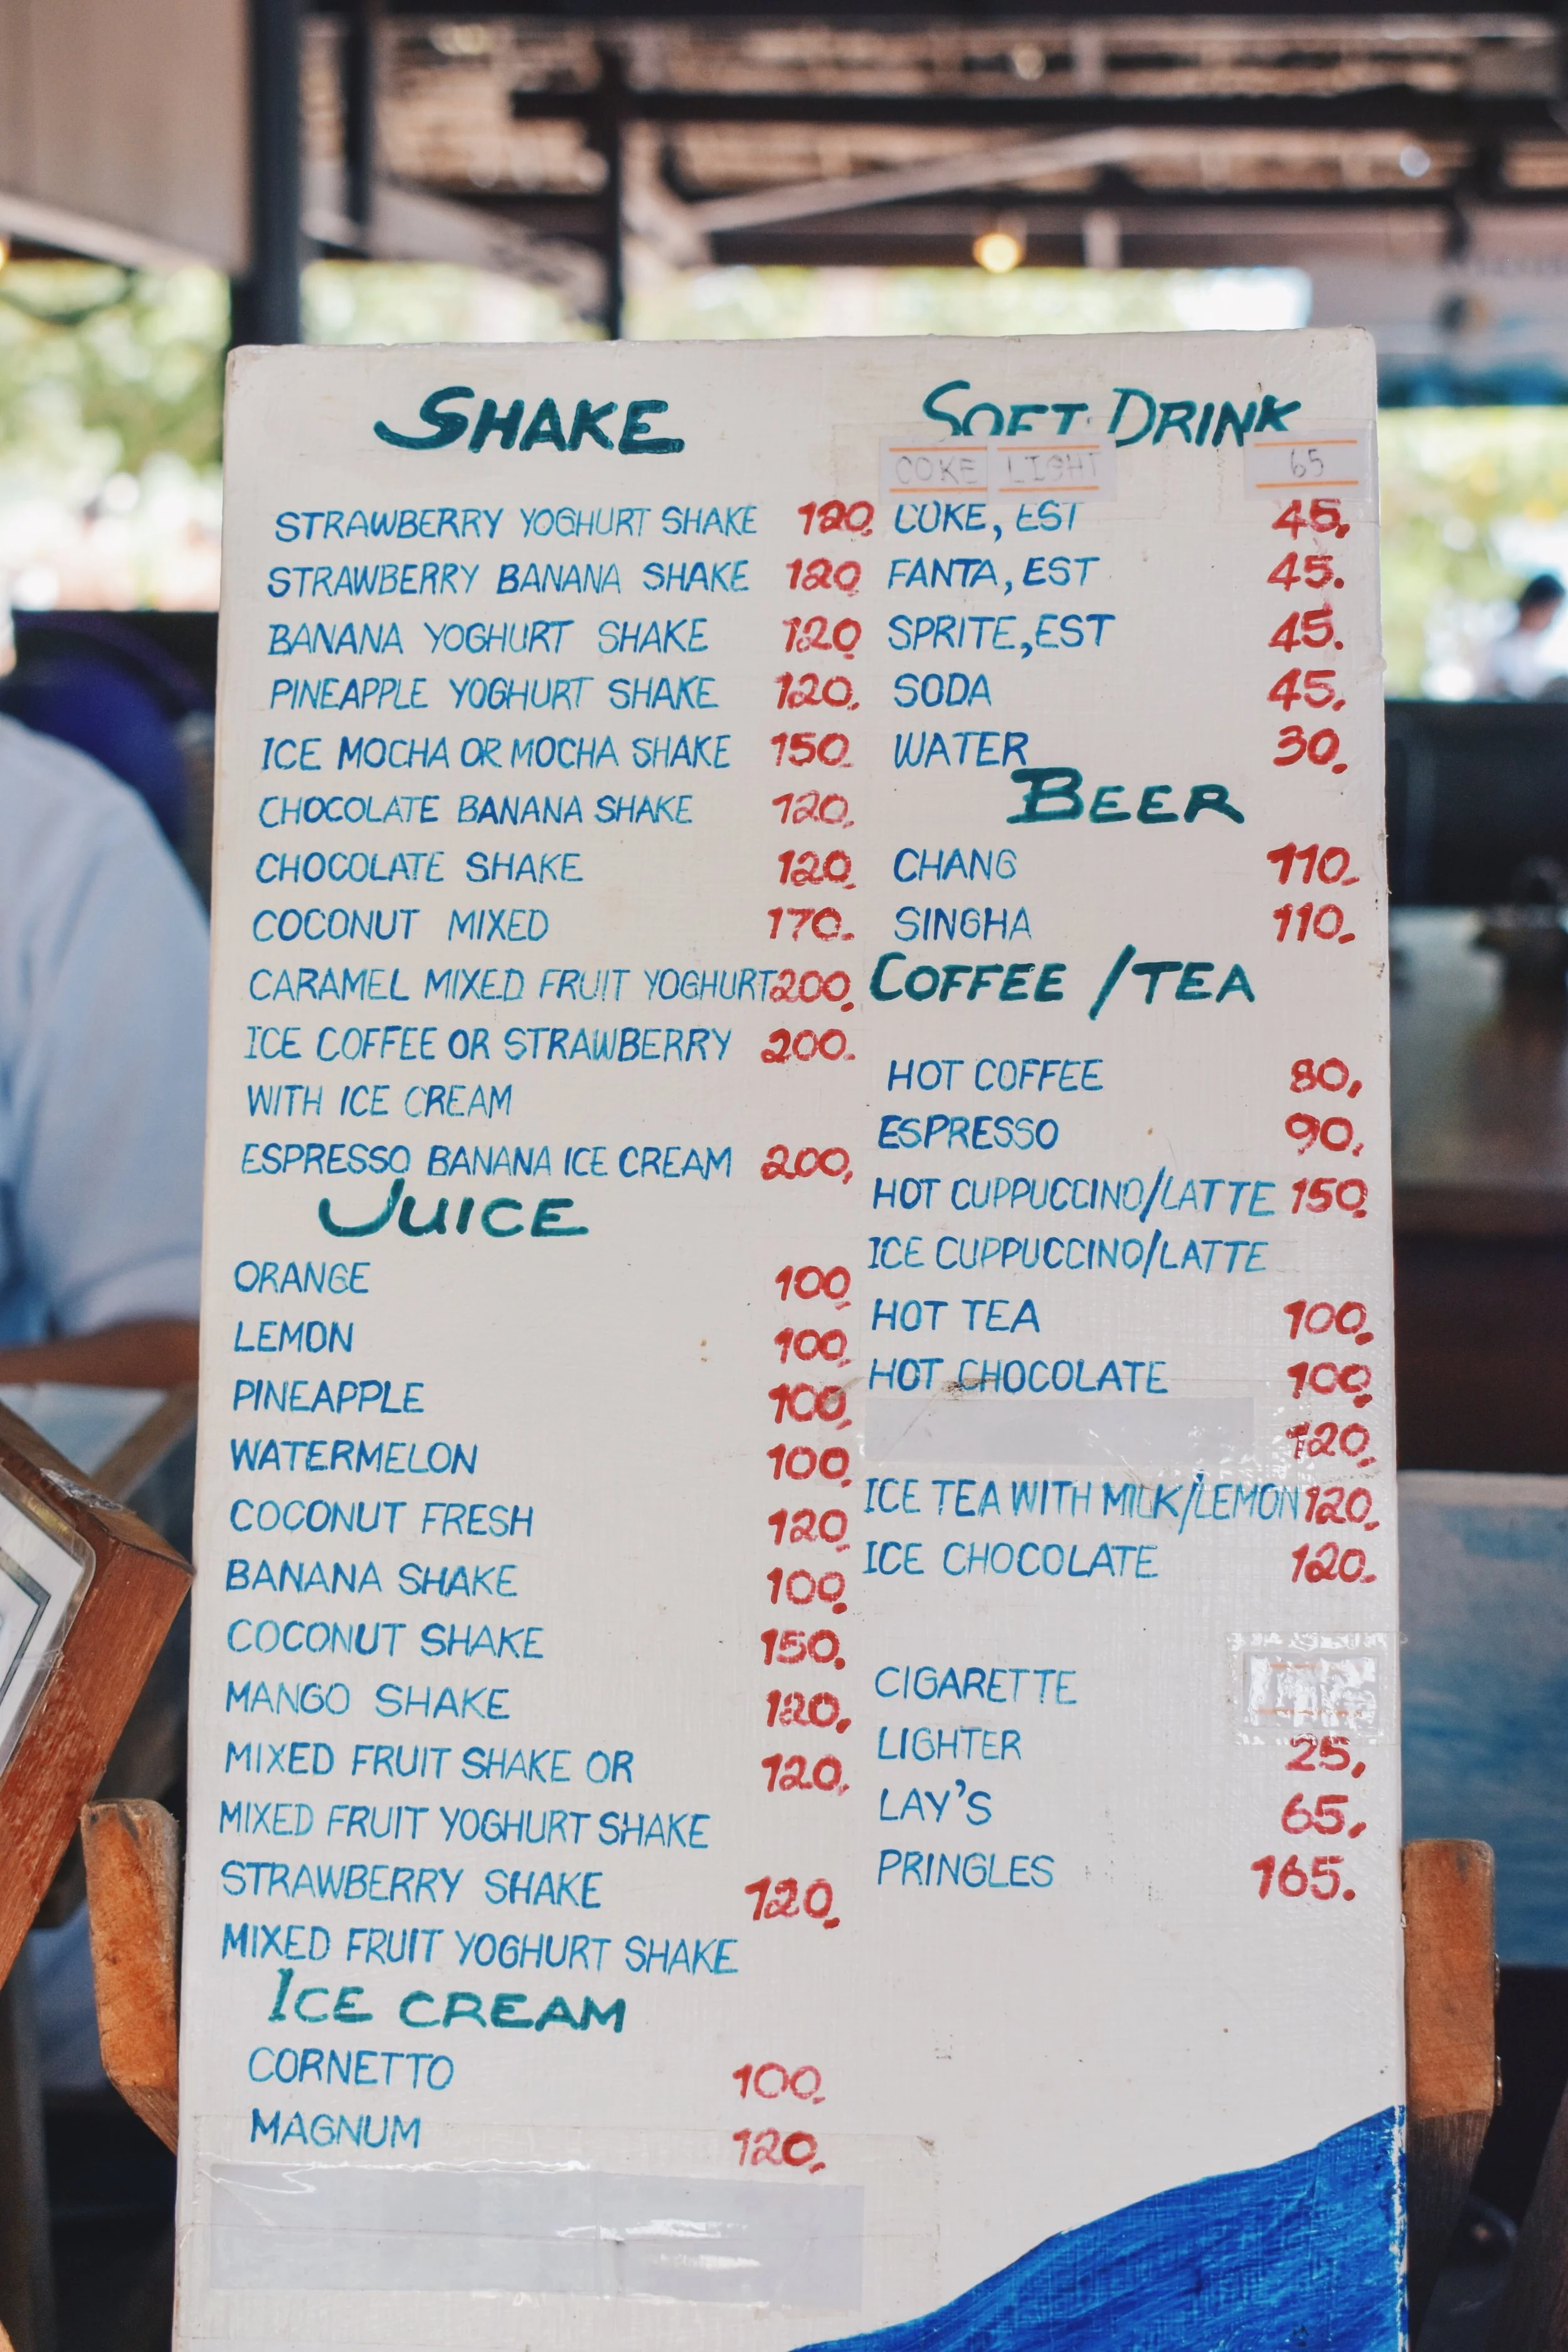 SHAKE
STRAWBERRY YOGHURT SHAKE 120.
STRAWBERRY BANANA SHAKE 120
BANANA YOGHURT SHAKE 120
PINEAPPLE YOGHURT SHAKE 120.
ICE MOCHA OR MOCHA SHAKE 150.
CHOCOLATE BANANA SHAKE 120.
CHOCOLATE SHAKE 120.
COCONUT MIXED 170.
CARAMEL MIXED FRUIT YOGHURT 200.
ICE COFFEE OR STRAWBERRY 200.
WITH ICE CREAM
ESPRESSO BANANA ICE CREAM 200,
JUICE
ORANGE 100.
LEMON 100.
PINEAPPLE 100,
WATERMELON 100.
COCONUT FRESH 120.
BANANA SHAKE 100.
COCONUT SHAKE 150.
MANGO SHAKE 120,
MIXED FRUIT SHAKE OR 120.
MIXED FRUIT YOGHURT SHAKE
STRAWBERRY SHAKE 120.
MIXED FRUIT YOGHURT SHAKE
ICE CREAM
CORNETTO 100.
MAGNUM 120.
SOFT DRINK
COKE LIGHT 65
COKE, EST 45.
FANTA, EST 45.
SPRITE, EST 45.
SODA 45.
WATER 30.
BEER
CHANG 110.
SINGHA 110.
COFFEE / TEA
HOT COFFEE 80,
ESPRESSO 90.
HOT CUPPUCCINO/LATTE 150.
ICE CUPPUCCINO/LATTE
HOT TEA 100.
HOT CHOCOLATE 100.
120.
ICE TEA WITH MILK/LEMON 120.
ICE CHOCOLATE 120.
CIGARETTE
LIGHTER 25,
LAY'S 65,
PRINGLES 165.